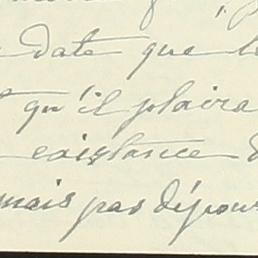 date que l
qu'il plaira
existance
mais pas dépour